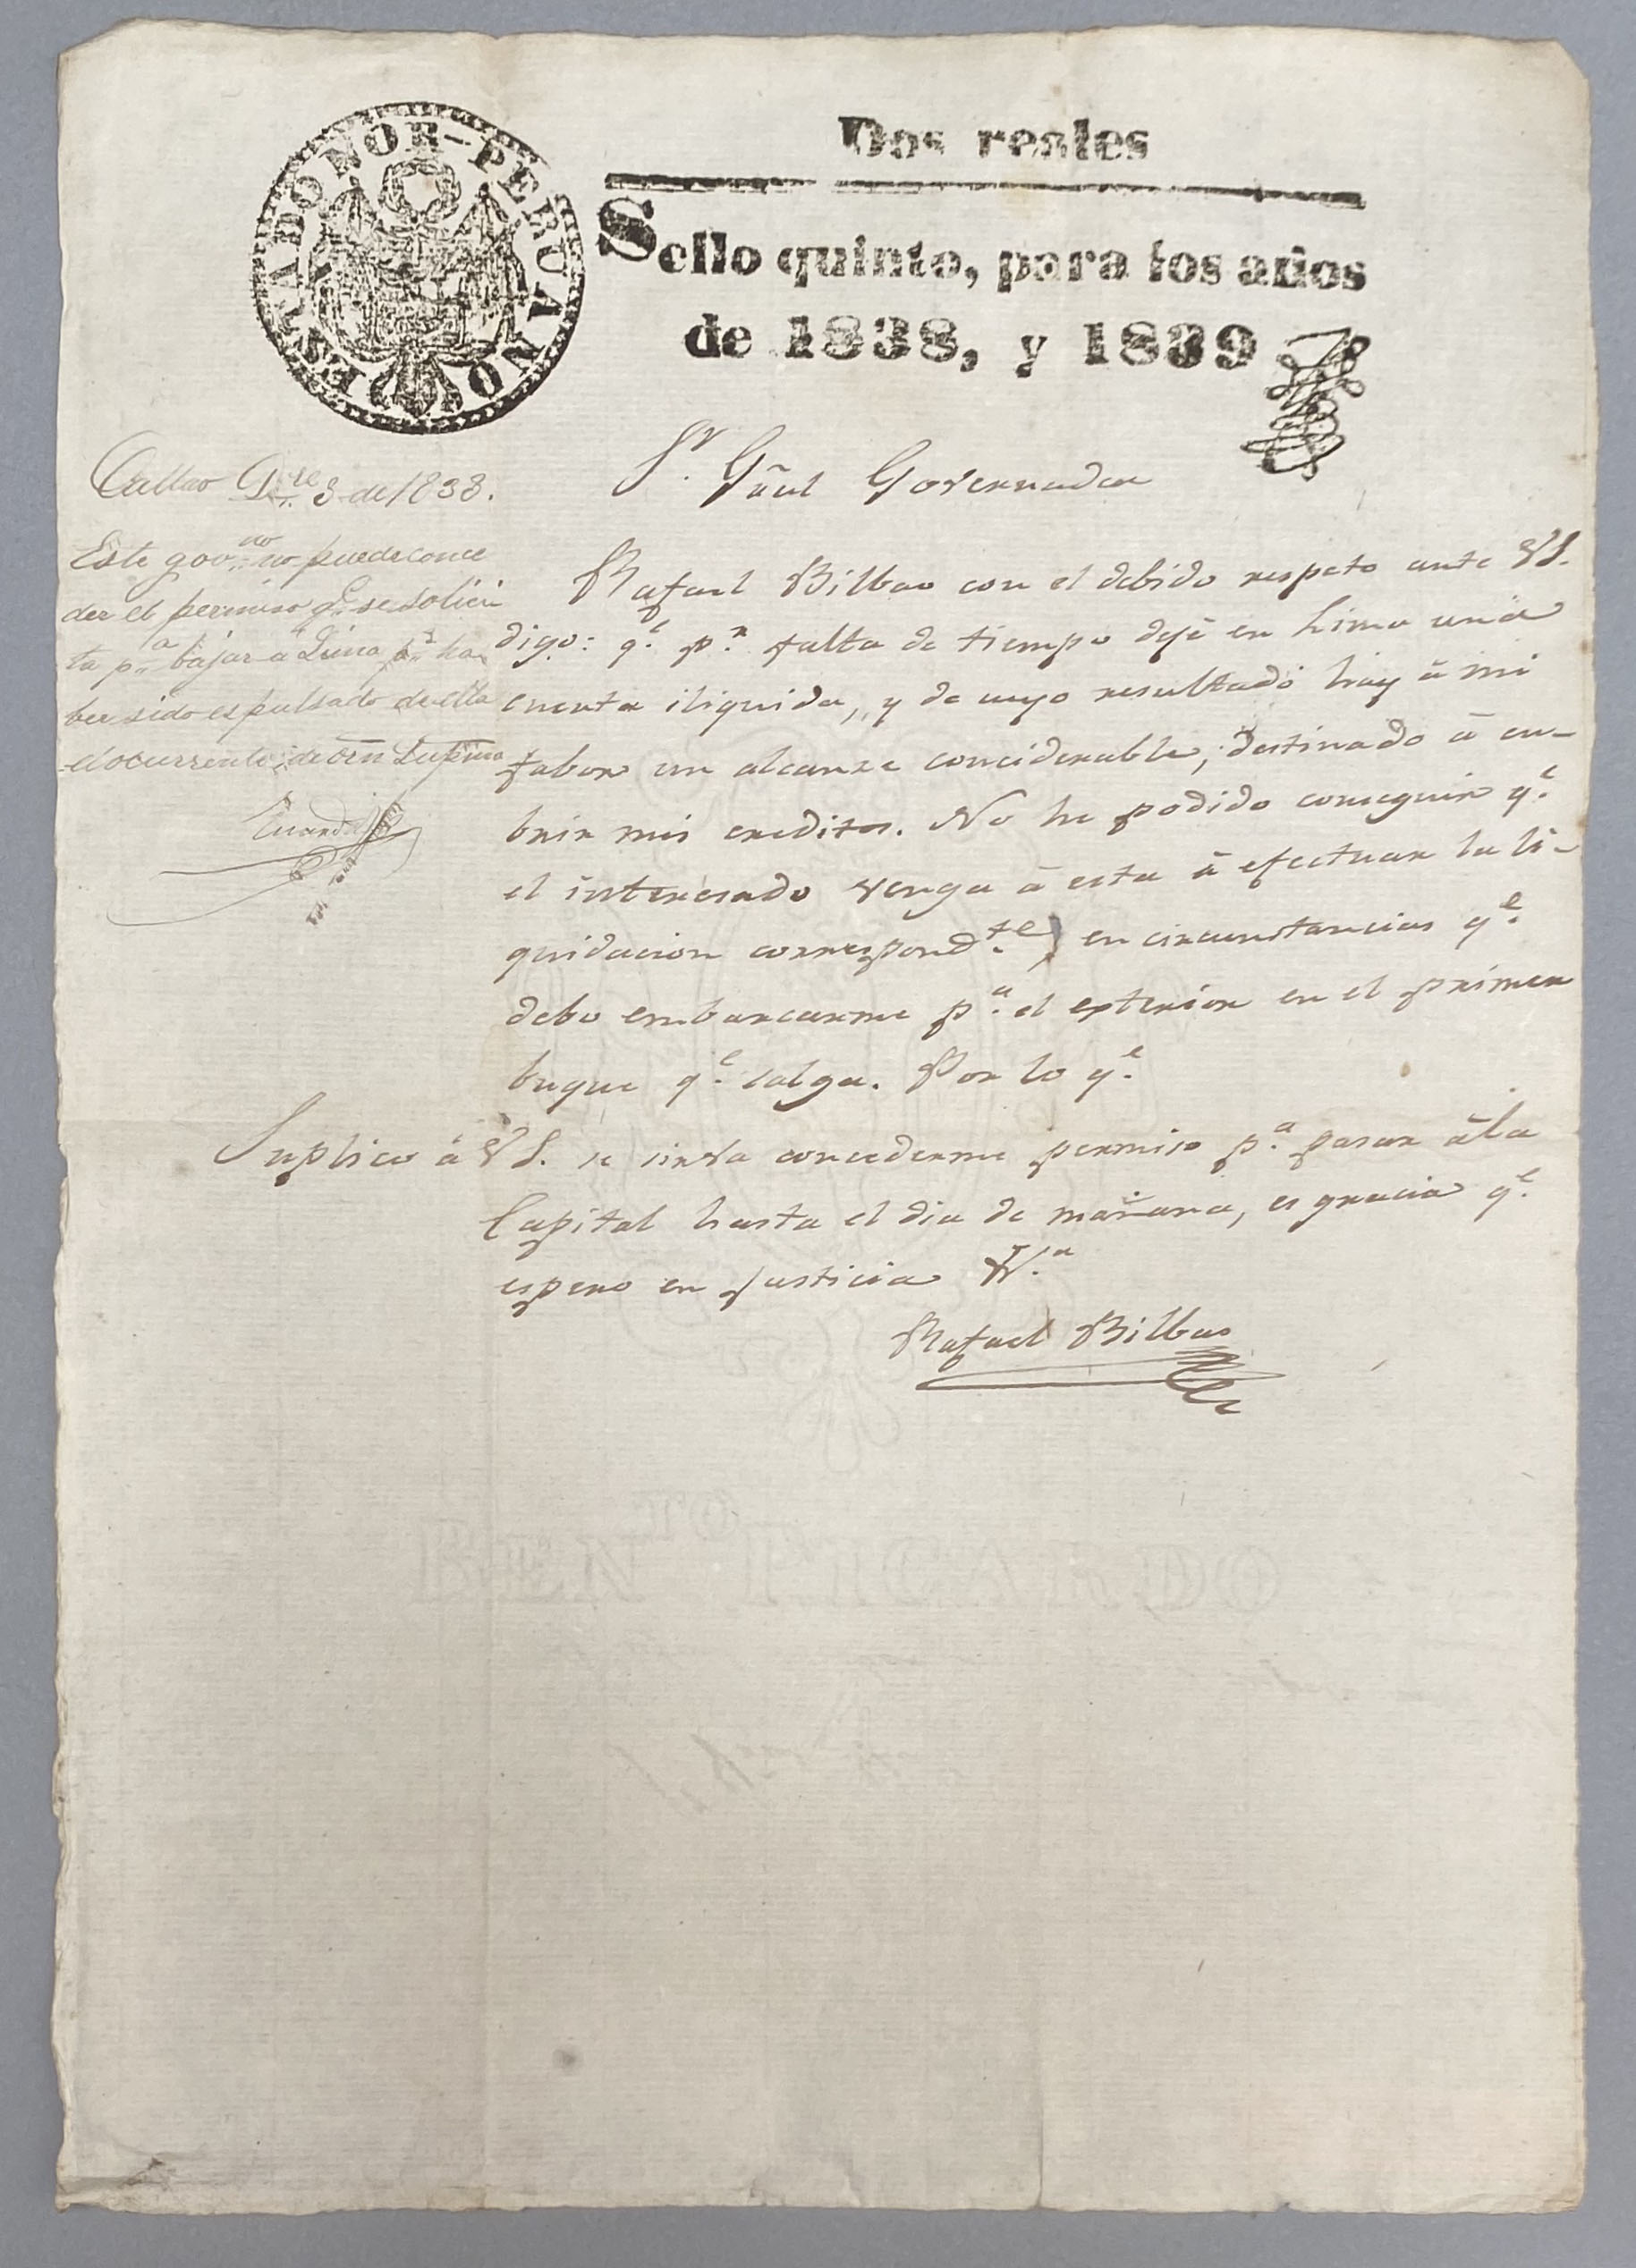 ESTADO NOR-PERUANO
Dos reales
Sello quinto, para los años
de 1838, y 1839
Sr. Gral Governador
Callao Dre. 3 de 1838.
Este govno. no puede conce
der el permiso qe. se solici
ta pa. bajar á Lima pr. ha
ber sido espulsado de ella
el ocurrente de orn Suprma
Rafael Bilbao con el debido respeto ante VS.
digo: qe. pr. falta de tiempo dejé en Lima una
cuenta iliquida, y de cuyo resultado hay á mi
fabor un alcanze conciderable, destinado á cu-
brir mis creditos. No he podido conseguir qe.
el interesado venga á esta á efectuar la li-
quidacion correspondte. en circunstancias qe.
debo embarcarme pa. el exterior en el primer
buque qe. salga. Por lo qe.
Suplico á VS. se sirva concederme permiso pa. pasar á la
Capital hasta el dia de mañana, es gracia qe.
espero en justicia
Rafael Bilbao